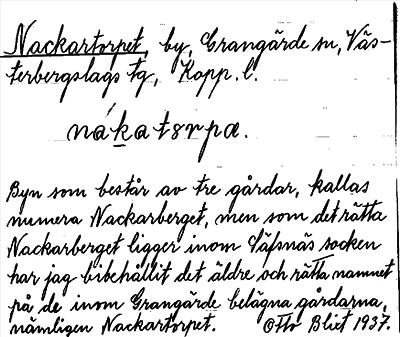 Nackartorpet, by, Grangärde sn, Väs-
terbergslags tg, Kopp. l.
nákatɜrpæ.
Byn som består av tre gårdar, kallas
numera Nackarberget, men som det rätta
Nackarberget ligger inom Säfsnäs socken
har jag bibehållit det äldre och rätta namnet
på de inom Grangärde belägna gårdarna,
nämligen Nackartorpet. Otto Blixt 1937.